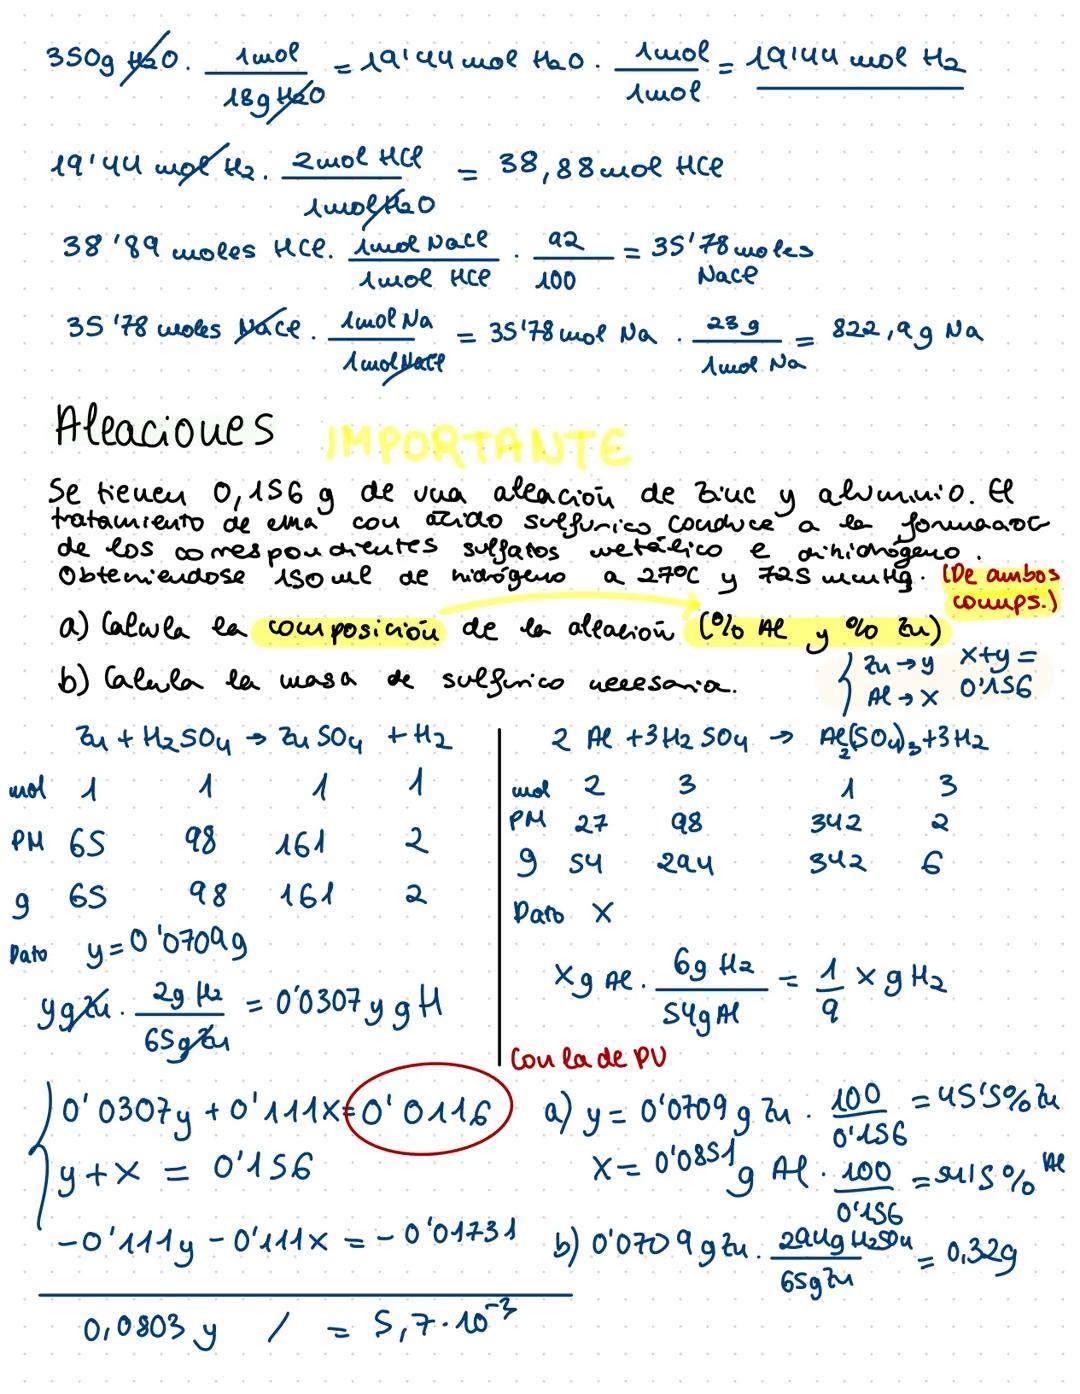 350g H2O · 1mol / 18g H2O = 19'44 mol H2O · 1mol / 1mol = 19'44 mol H2
19'44 mol H2 · 2mol HCl / 1mol H2O = 38,88 mol HCl
38'89 moles HCl · 1mol NaCl / 1mol HCl · 92 / 100 = 35'78 moles NaCl
35'78 moles NaCl · 1mol Na / 1mol NaCl = 35'78 mol Na · 23g / 1mol Na = 822,9g Na
Aleaciones IMPORTANTE
Se tienen 0,156 g de una aleación de zinc y aluminio. El
tratamiento de ema con ácido sulfúrico conduce a la formaaoc
de los correspondientes sulfatos metálico e dihidrógeno.
Obteniendose 150 ml de hidrógeno a 27ºC y 725 mmHg. (De ambos
comps.)
a) Calcula la composición de la aleación (% Al y % Zn)
{ Zn → y x+y =
b) Calula la masa de sulfúrico necesaria.
Al → x 0'156
Zn + H2SO4 → ZnSO4 + H2
mol 1 1 1 1
PM 65 98 161 2
g 65 98 161 2
Dato y=0'0709g
yg Zn · 2g H2 / 65g Zn = 0'0307 y g H
2 Al + 3H2SO4 → Al2(SO4)3 + 3H2
mol 2 3 1 3
PM 27 98 342 2
g 54 294 342 6
Dato x
xg Al · 6g H2 / 54g Al = 1/9 x g H2
Con la de PV
{ 0'0307y + 0'111x = 0'0116
y + x = 0'156
-0'111y - 0'111x = -0'01731
0,0803 y / = 5,7·10^-3
a) y = 0'0709 g Zn · 100 / 0'156 = 45'5% Zn
x = 0'0851 g Al · 100 / 0'156 = 54'5% Al
b) 0'0709 g Zn · 294g H2SO4 / 65g Zn = 0,32g